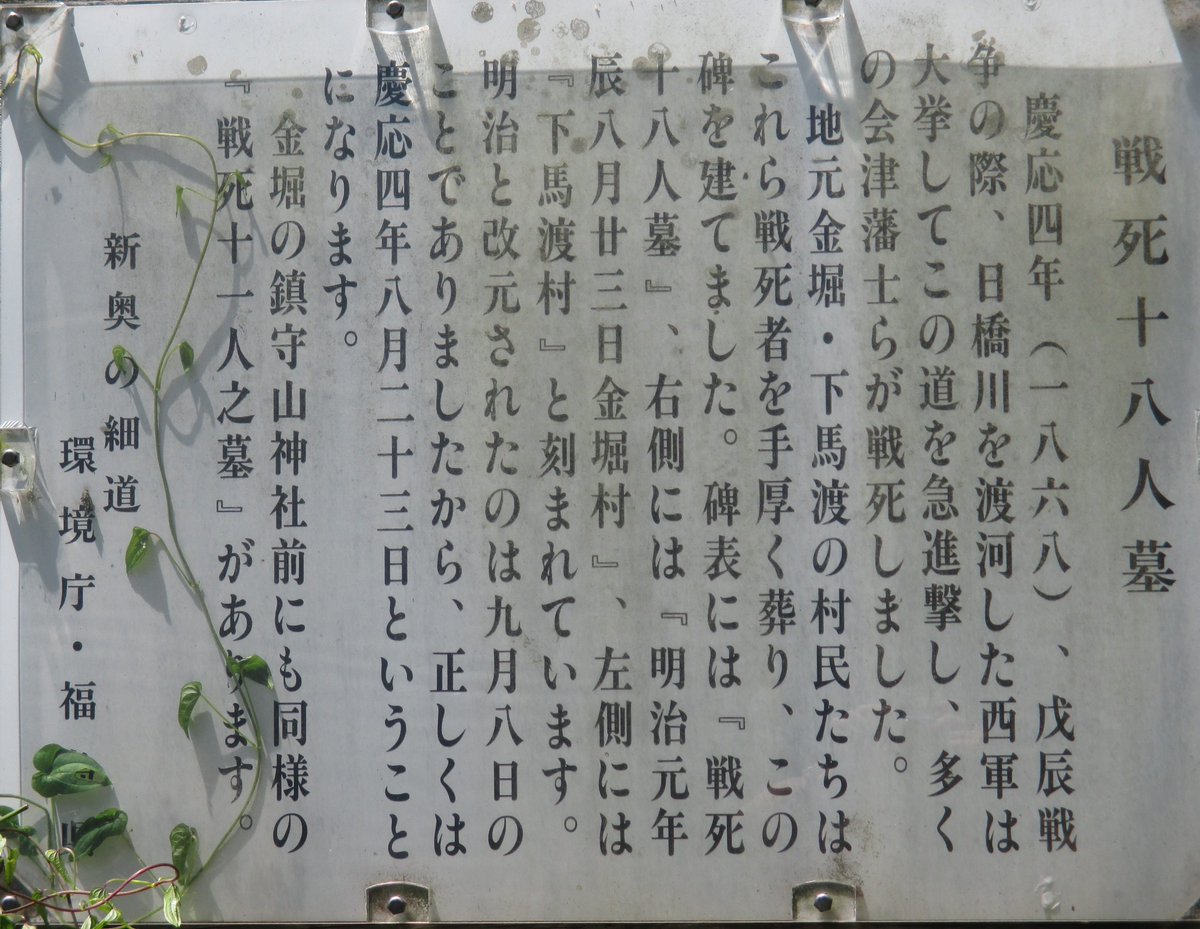 戦死十八人墓
慶応四年（一八六八）、戊辰戦
争の際、日橋川を渡河した西軍は
大挙してこの道を急進撃し、多く
の会津藩士らが戦死しました。
地元金堀・下馬渡の村民たちは
これら戦死者を手厚く葬り、この
碑を建てました。碑表には『戦死
十八人墓』、右側には『明治元年
辰八月廿三日金堀村』、左側には
『下馬渡村』と刻まれています。
明治と改元されたのは九月八日の
ことでありましたから、正しくは
慶応四年八月二十三日ということ
になります。
金堀の鎮守山神社前にも同様の
『戦死十一人之墓』があります。
新奥の細道
環境庁・福